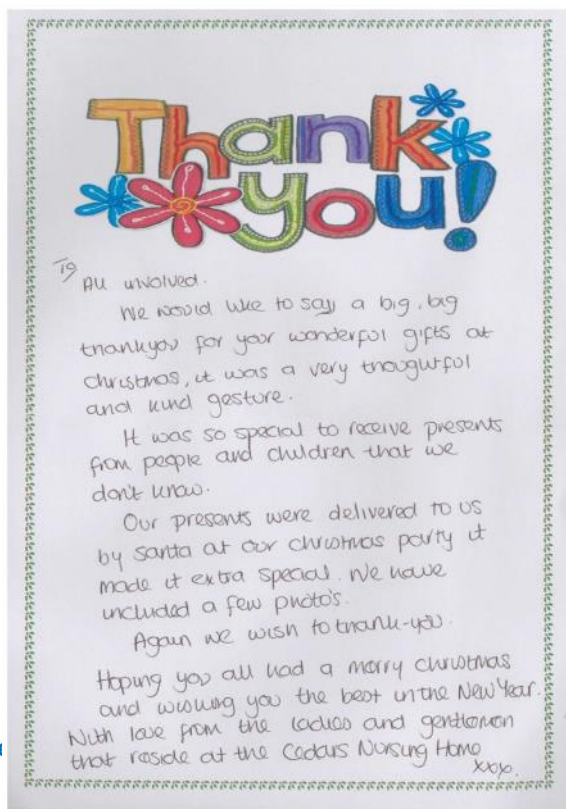 Thank
you!
To All involved.
We would like to say a big, big
thankyou for your wonderful gifts at
christmas, it was a very thoughtful
and kind gesture.
It was so special to receive presents
from people and children that we
don't know.
Our presents were delivered to us
by santa at our christmas party it
made it extra special. We have
included a few photo's.
Again we wish to thank-you.
Hoping you all had a merry christmas
and wishing you the best in the New Year.
With love from the ladies and gentlemen
that reside at the Cedars Nursing Home
xxox.